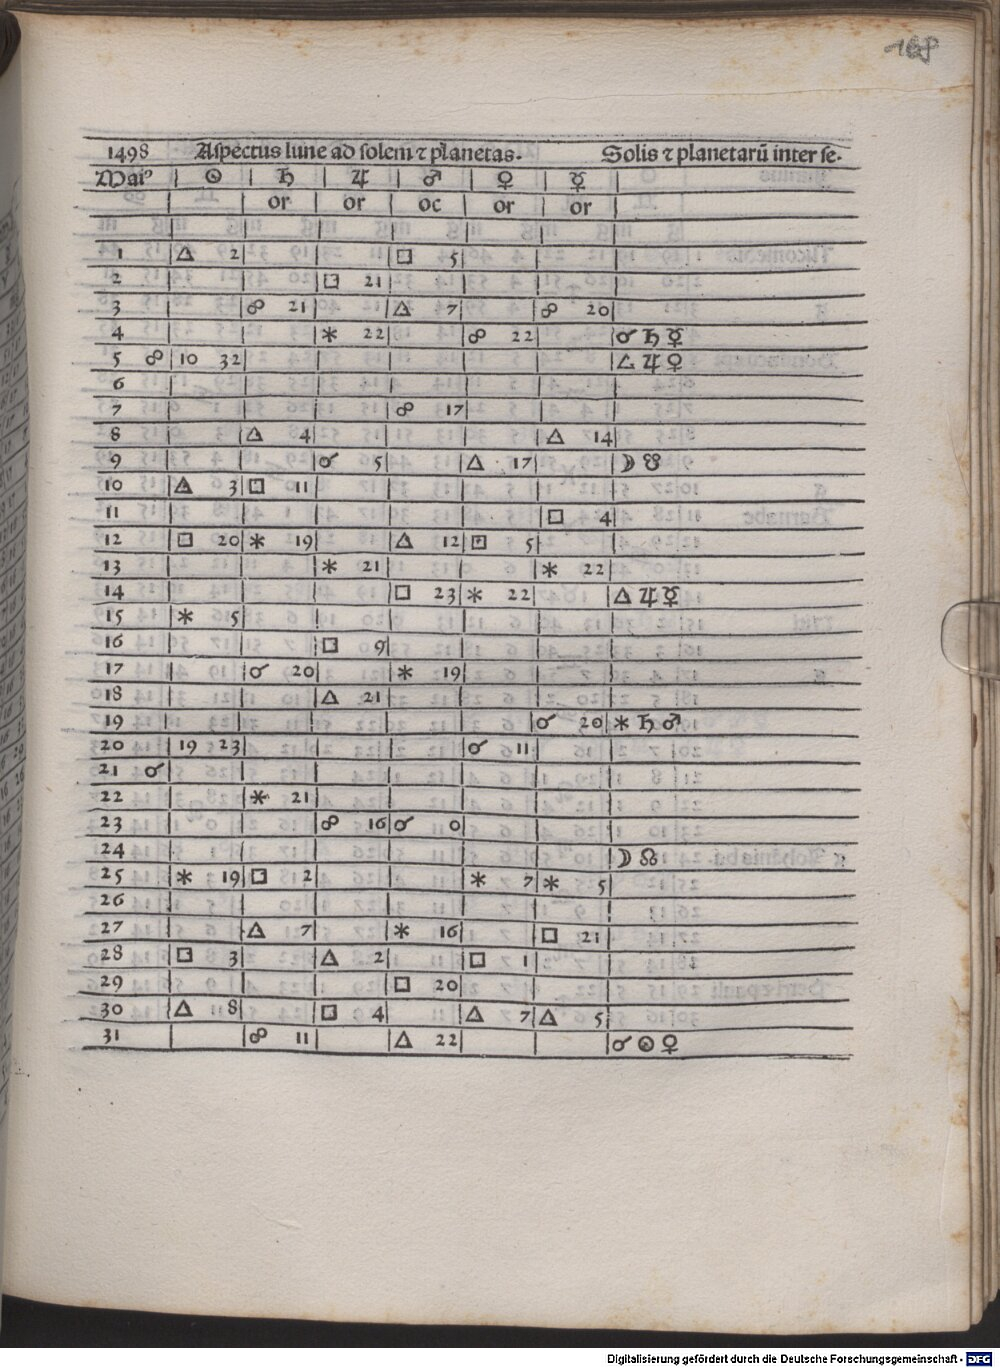 168
1498 Aspectus lune ad solem ⁊ planetas. Solis ⁊ planetarũ inter se.
Maiꝰ ☉ ♄ ♃ ♂ ♀ ☿
or or oc or or
1 △ 2 □ 5
2 □ 21
3 ☍ 21 △ 7 ☍ 20
4 ⚹ 22 ☍ 22 ☌ ♄ ☿
5 ☍ 10 32 △ ♃ ♀
6
7 ☍ 17
8 △ 4 △ 14
9 ☌ 5 △ 17 ☽ ☋
10 △ 3 □ 11
11 □ 4
12 □ 20 ⚹ 19 △ 12 □ 5
13 ⚹ 21 ⚹ 22
14 □ 23 ⚹ 22 △ ♃ ☿
15 ⚹ 5
16 □ 9
17 ☌ 20 ⚹ 19
18 △ 21
19 ☌ 20 ⚹ ♄ ♂
20 19 23 ☌ 11
21 ☌
22 ⚹ 21
23 ☍ 16 ☌ 0
24 ☽ ☊
25 ⚹ 19 □ 2 ⚹ 7 ⚹ 5
26
27 △ 7 ⚹ 16 □ 21
28 □ 3 △ 2 □ 1
29 □ 20
30 △ 18 □ 4 △ 7 △ 5
31 ☍ 11 △ 22 ☌ ☉ ♀
Digitalisierung gefördert durch die Deutsche Forschungsgemeinschaft - DFG